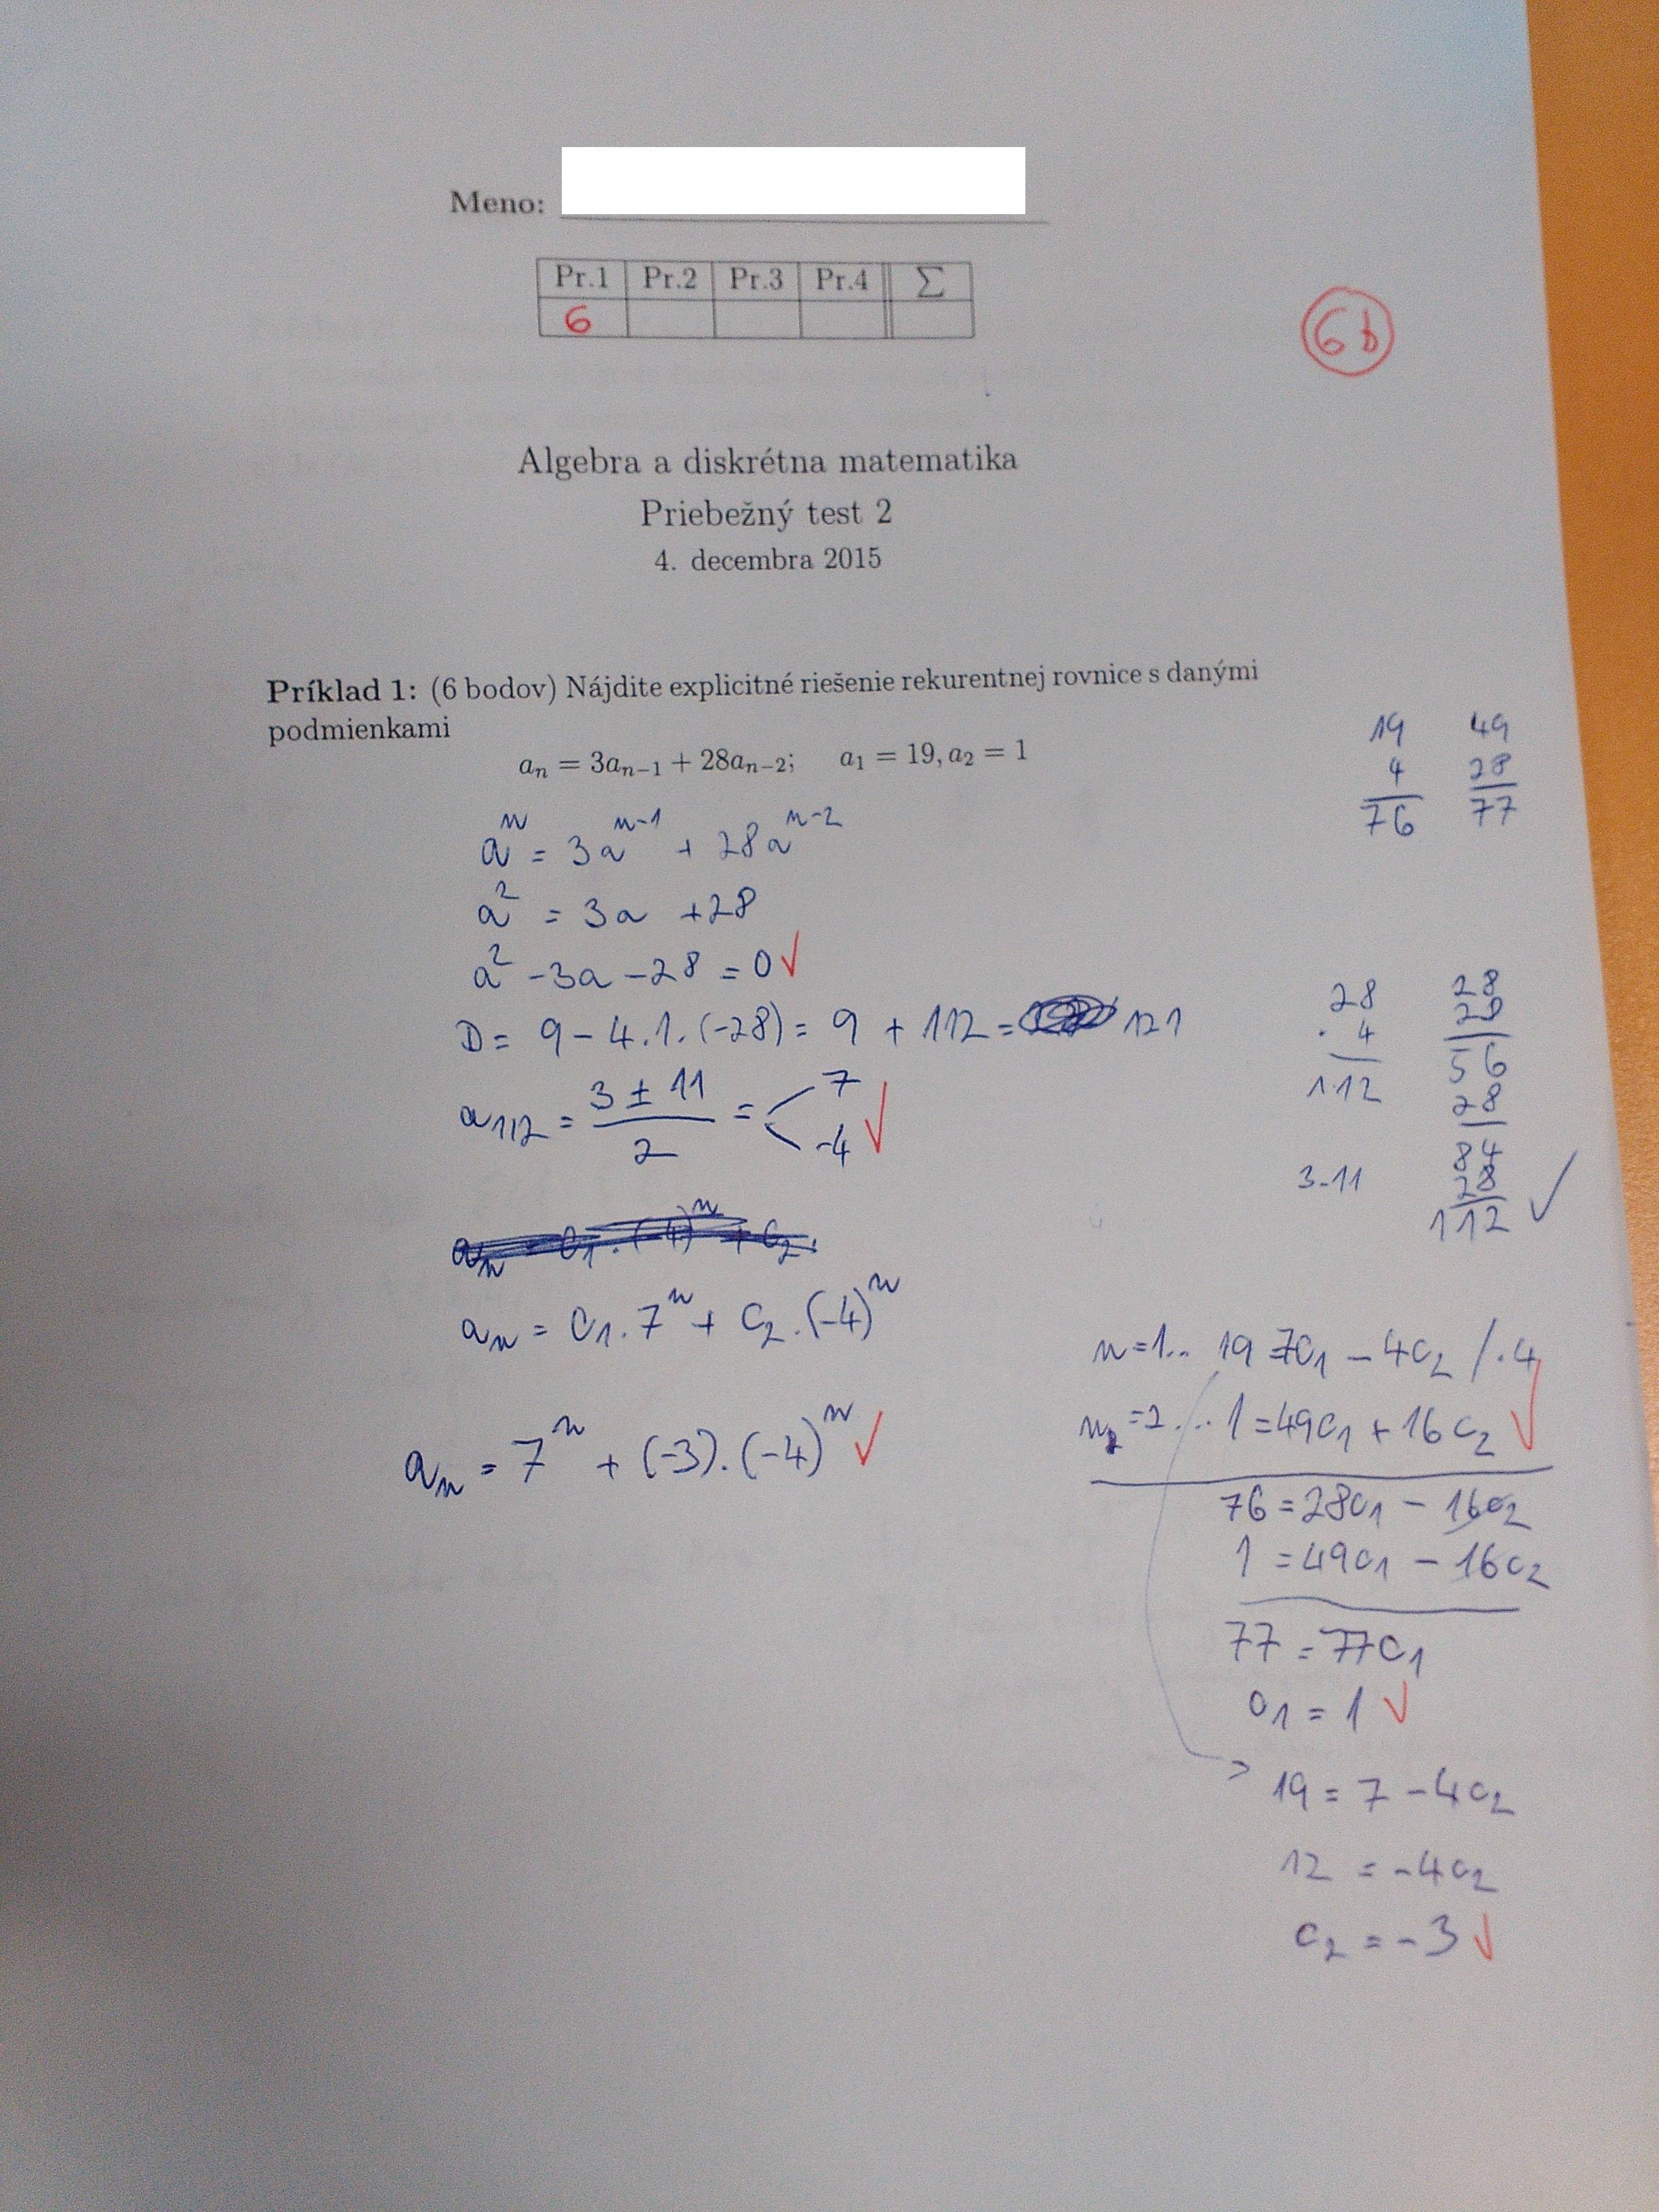 Meno:
Pr.1 Pr.2 Pr.3 Pr.4 Σ
6
6b
Algebra a diskrétna matematika
Priebežný test 2
4. decembra 2015
Príklad 1: (6 bodov) Nájdite explicitné riešenie rekurentnej rovnice s danými
podmienkami
aₙ = 3aₙ₋₁ + 28aₙ₋₂; a₁ = 19, a₂ = 1
19 49
4 28
76 77
aⁿ = 3aⁿ⁻¹ + 28aⁿ⁻²
a² = 3a + 28
a² - 3a - 28 = 0 ✓
D = 9 - 4.1.(-28) = 9 + 112 = 121
a₁,₂ = (3 ± 11)/2 = < 7
-4 ✓
28
. 4
112
28
28
56
28
84
28
112 ✓
3-11
aₙ = c₁.(-4)ⁿ + c₂.
aₙ = c₁.7ⁿ + c₂.(-4)ⁿ
aₙ = 7ⁿ + (-3).(-4)ⁿ ✓
n=1.. 19 = 7c₁ - 4c₂ /.4
n₂=2... 1 = 49c₁ + 16c₂ ✓
76 = 28c₁ - 16c₂
1 = 49c₁ - 16c₂
77 = 77c₁
c₁ = 1 ✓
> 19 = 7 - 4c₂
12 = -4c₂
c₂ = -3 ✓